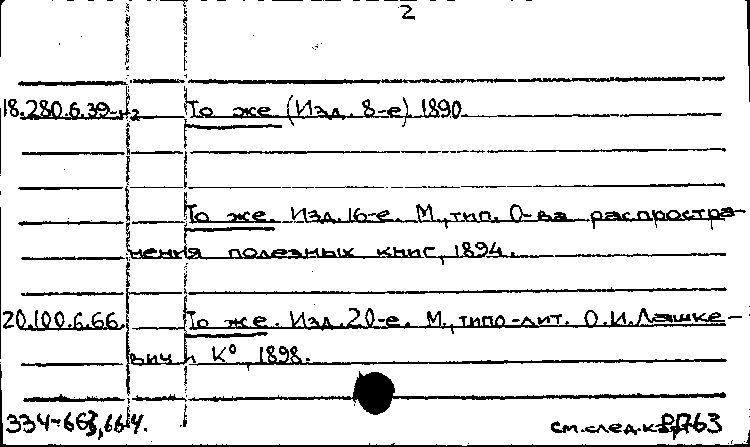 2
18.280.6.39 То же (Изд. 8-е) 1890.
То же. Изд. 16-е. М., тип. О-ва распростра-
нения полезных книг, 1894.
20.100.6.66. То же. Изд. 20-е. М., типо-лит. О.И. Лашке-
вич и К°, 1898.
334-663,664. см.след.к